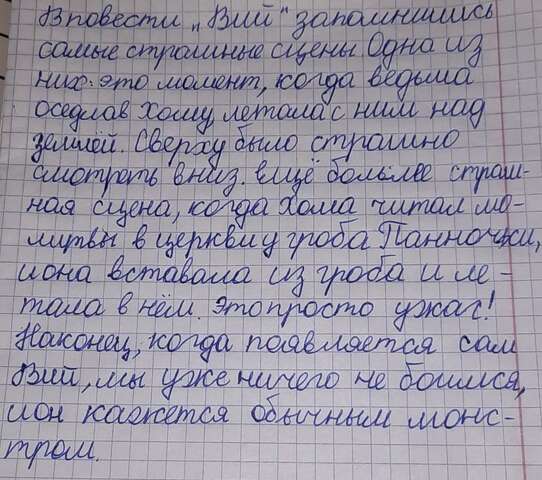 В повести „Вий" запомнились
самые страшные сцены. Одна из
них: это момент, когда ведьма
оседлав Хому, летала с ним над
землёй. Сверху было страшно
смотреть вниз. Ещё более страш-
ная сцена, когда Хома читал мо-
литвы в церкви у гроба Панночки,
и она вставала из гроба и ле-
тала в нём. это просто ужас!
Наконец, когда появляется сам
Вий, мы уже ничего не боимся,
и он кажется обычным монс-
тром.